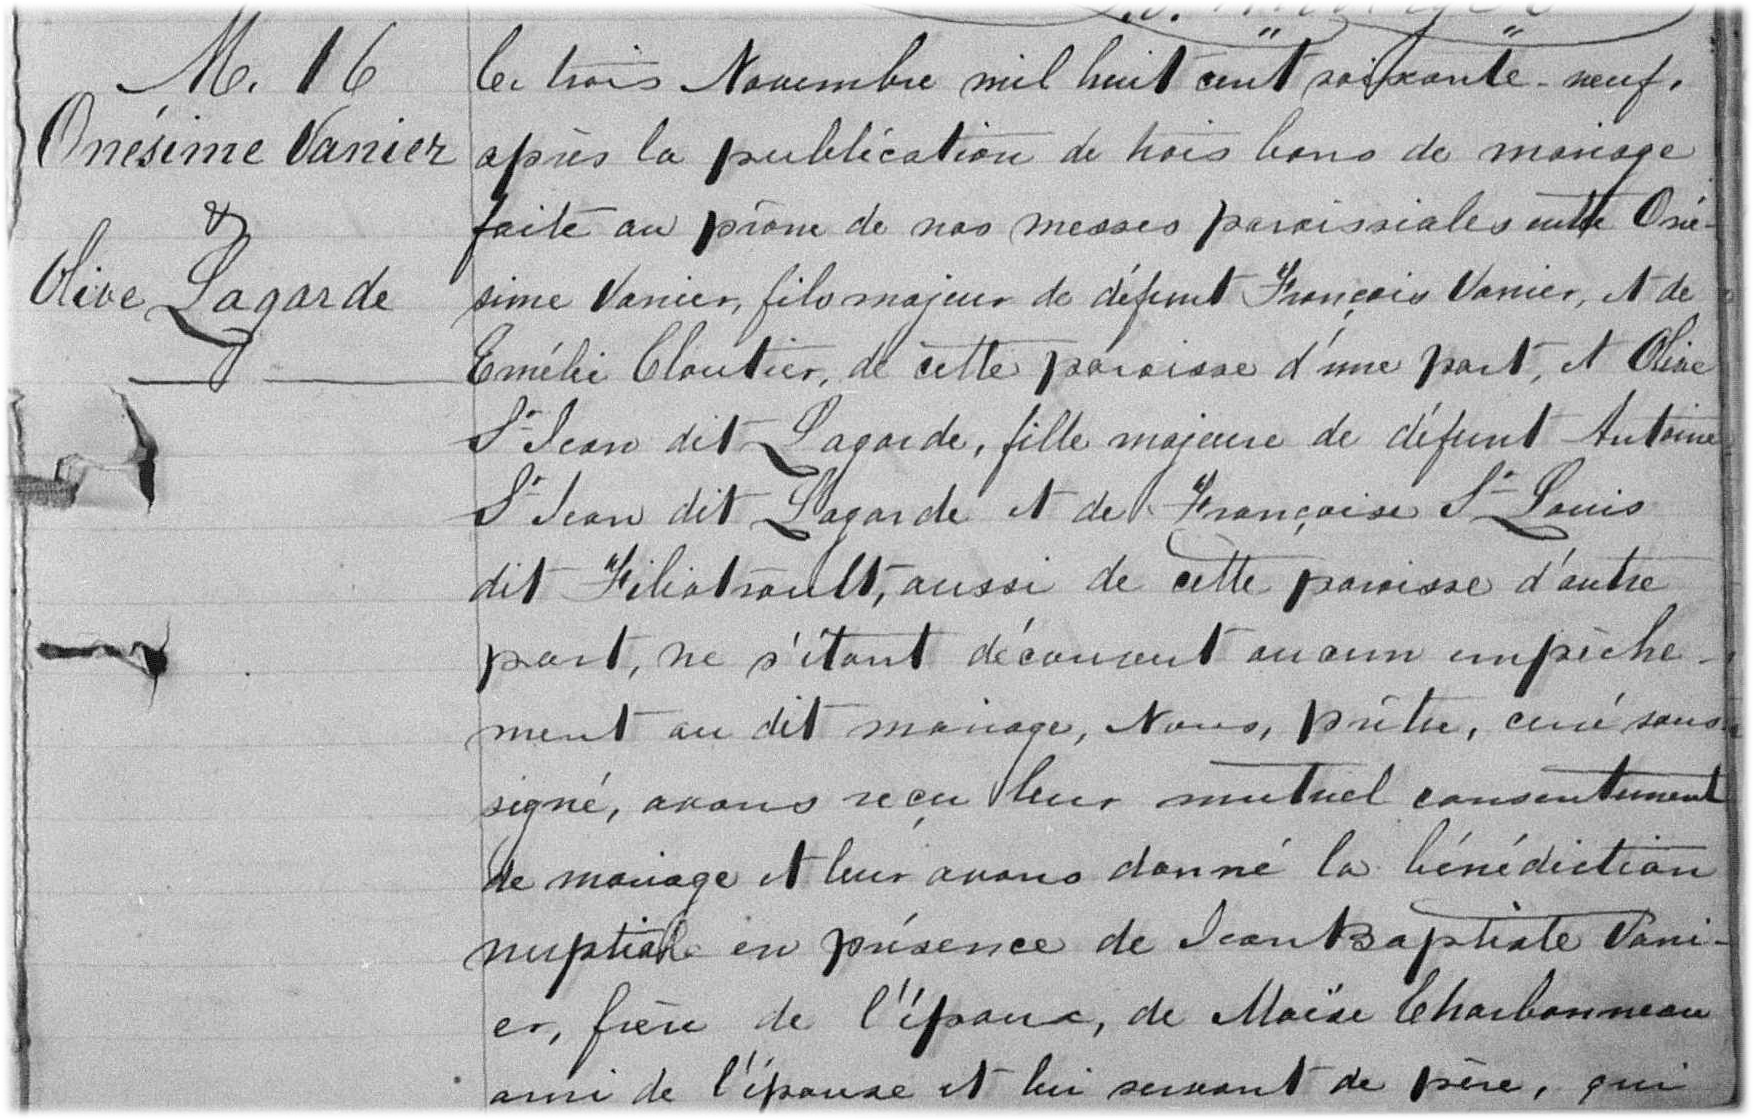 M. 16
Onésime Vanier
&
Olive Lagarde
Le trois Novembre mil huit cent soixante-neuf,
après la publication de trois bans de mariage
faite au prône de nos messes paroissiales entre Oné-
sime Vanier, fils majeur de défunt François Vanier, et de
Emélie Cloutier, de cette paroisse d'une part, et Olive
St Jean dit Lagarde, fille majeure de défunt Antoine
St Jean dit Lagarde et de Françoise St Louis
dit Filiatrault, aussi de cette paroisse d'autre
part, ne s'étant découvert aucun empêche-
ment au dit mariage, Nous, prêtre, curé sous-
signé, avons reçu leur mutuel consentement
de mariage et leur avons donné la bénédiction
nuptiale en présence de Jean Baptiste Vani-
er, frère de l'époux, de Moïse Charbonneau
ami de l'épouse et lui servant de père, qui